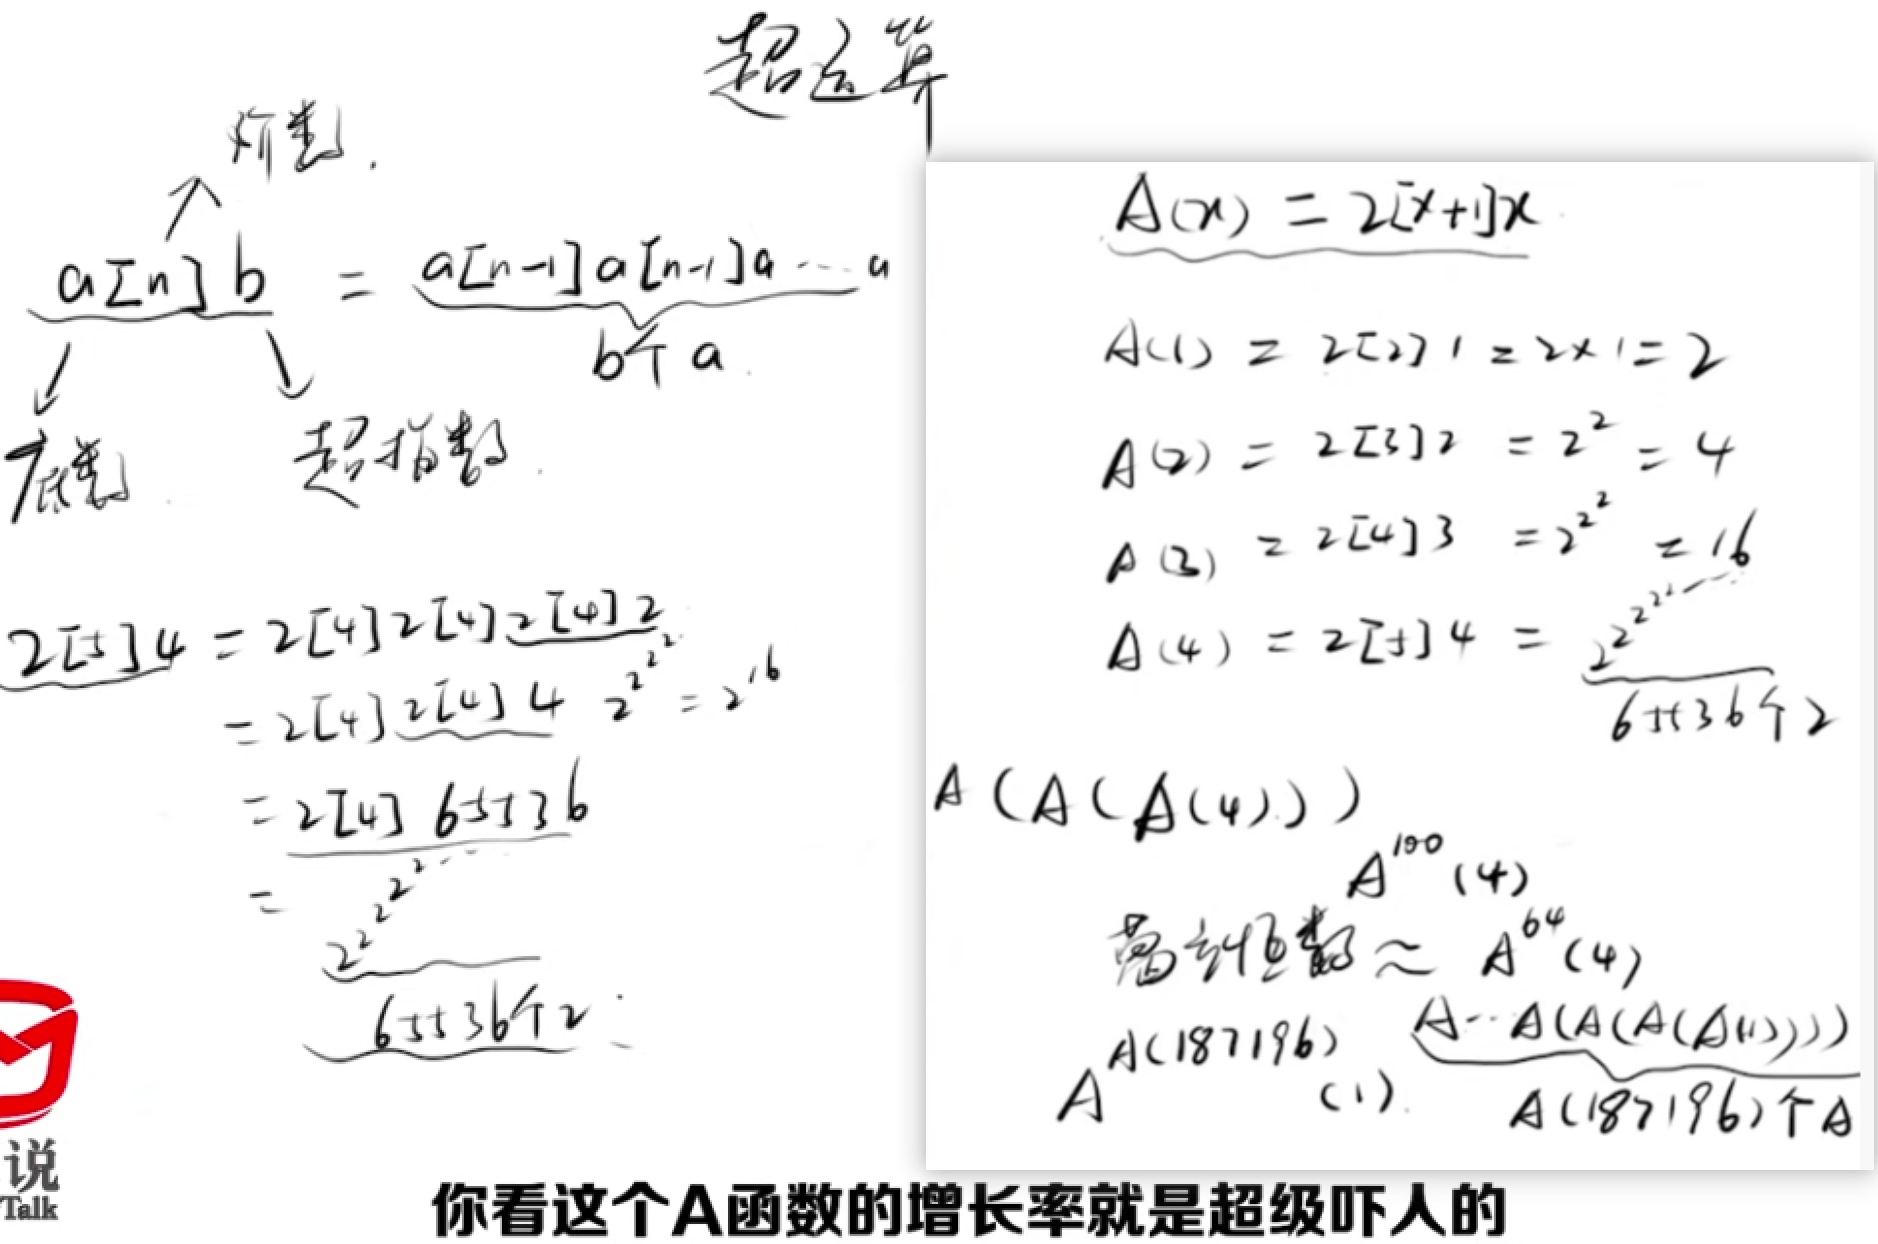 超运算
阶数
a[n]b = a[n-1]a[n-1]a…a
b个a
底数 超指数
2[5]4 = 2[4]2[4]2[4]2
= 2[4]2[4]4 2^2^2^2 = 2^16
= 2[4]65536
= 2^2^2^2^2^…
65536个2
A(x) = 2[x+1]x
A(1) = 2[2]1 = 2×1 = 2
A(2) = 2[3]2 = 2^2 = 4
A(3) = 2[4]3 = 2^2^2 = 16
A(4) = 2[5]4 = 2^2^2^2^2^…
65536个2
A(A(A(4)))
A^100(4)
葛立恒数 ~ A^64(4)
A^A(187196)(1) A…A(A(A(A(1))))
A(187196)个A
说
Talk
你看这个A函数的增长率就是超级吓人的